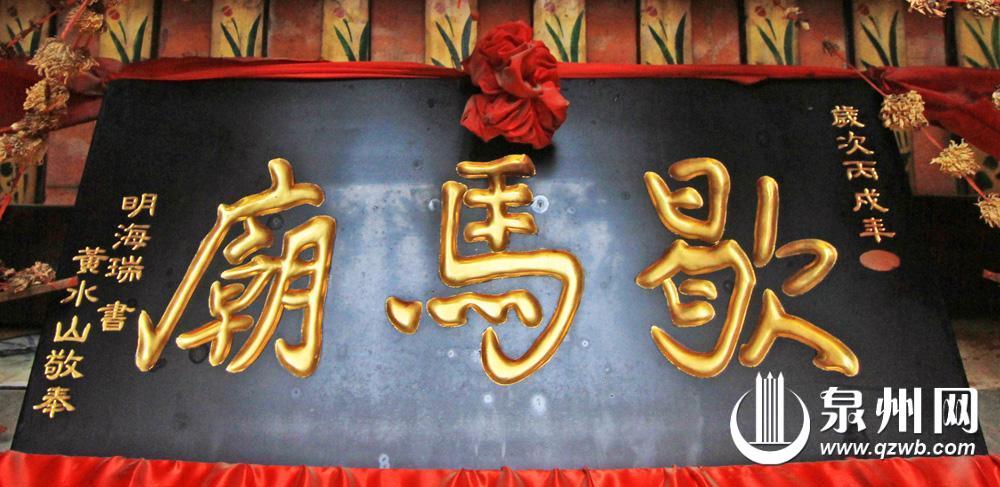 歲次丙戌年
歇馬廟
明海瑞書
黃水山敬奉
泉州网
www.qzwb.com